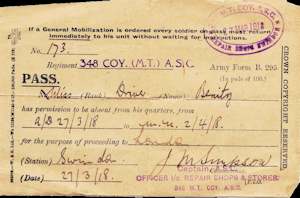 If a General Mobilization is ordered every soldier on pass must return
immediately to his unit without waiting for instructions.
No. 173
Regiment 348 COY. (M.T.) A.S.C.
Army Form B. 295
(In pads of 100.)
PASS.
(Rank) Driver
has permission to be absent from his quarters, from
27/3/18 to 2/4/18.
for the purpose of proceeding to London
(Station) Swindon
(Date) 27/3/18
Captain, A.S.C.
OFFICER i/c REPAIR SHOPS & STORES
348 M.T. COY. A.S.C.
CROWN COPYRIGHT RESERVED